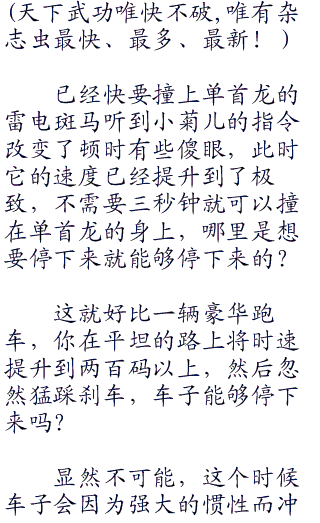 (天下武功唯快不破,唯有杂
志虫最快、最多、最新！)
已经快要撞上单首龙的
雷电斑马听到小菊儿的指令
改变了顿时有些傻眼，此时
它的速度已经提升到了极
致，不需要三秒钟就可以撞
在单首龙的身上，哪里是想
要停下来就能够停下来的？
这就好比一辆豪华跑
车，你在平坦的路上将时速
提升到两百码以上，然后忽
然猛踩刹车，车子能够停下
来吗？
显然不可能，这个时候
车子会因为强大的惯性而冲